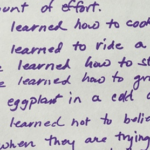 ount of effort.
learned how to cook
learned to ride a
learned how to s
learned how to gr
eggplant in a cold c
learned not to belie
when they are trying